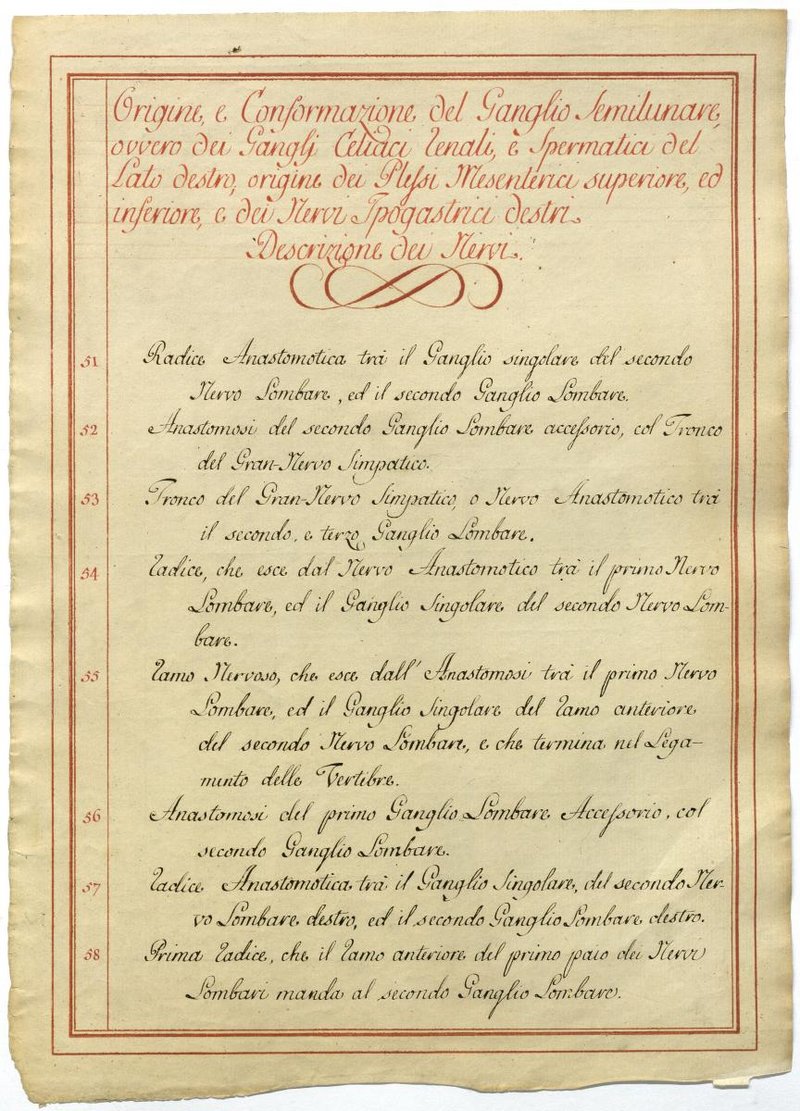 Origine, e Conformazione del Ganglio Semilunare,
ovvero dei Gánglj Celiaci Renali, e Spermatici del
Lato destro, origine dei Plessi Mesenterici superiore, ed
inferiore, e dei Nervi Ipogastrici destri.
Descrizione dei Nervi.
51 Radice Anastomotica trà il Ganglio singolare del secondo
Nervo Lombare, ed il secondo Ganglio Lombare.
52 Anastomosi del secondo Ganglio Lombare accessorio, col Tronco
del Gran-Nervo Simpatico.
53 Tronco del Gran-Nervo Simpatico, o Nervo Anastomotico trà
il secondo, e terzo Ganglio Lombare.
54 Radice, che esce dal Nervo Anastomotico trà il primo Nervo
Lombare, ed il Ganglio Singolare del secondo Nervo Lom-
bare.
55 Ramo Nervoso, che esce dall' Anastomosi trà il primo Nervo
Lombare, ed il Ganglio Singolare del Ramo anteriore
del secondo Nervo Lombare, e che termina nel Lega-
mento delle Vertibre.
56 Anastomosi del primo Ganglio Lombare Accessorio, col
secondo Ganglio Lombare.
57 Radice Anastomotica trà il Ganglio Singolare, del secondo Ner-
vo Lombare destro, ed il secondo Ganglio Lombare destro.
58 Prima Radice, che il Ramo anteriore del primo paio dei Nervi
Lombari manda al secondo Ganglio Lombare.